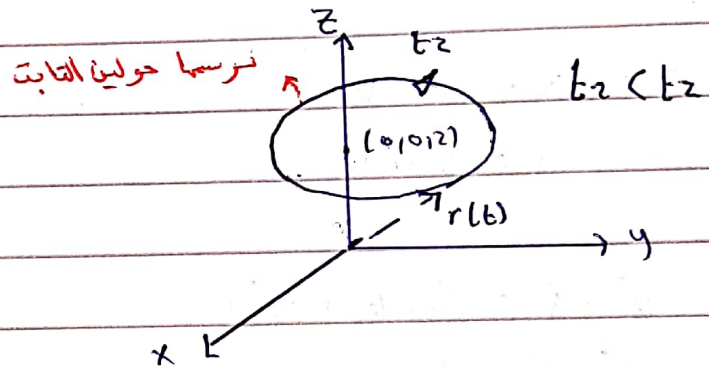 z
t2
نرسمها حولين الثابت
t2 < t2
(0,0,2)
r(t)
y
x